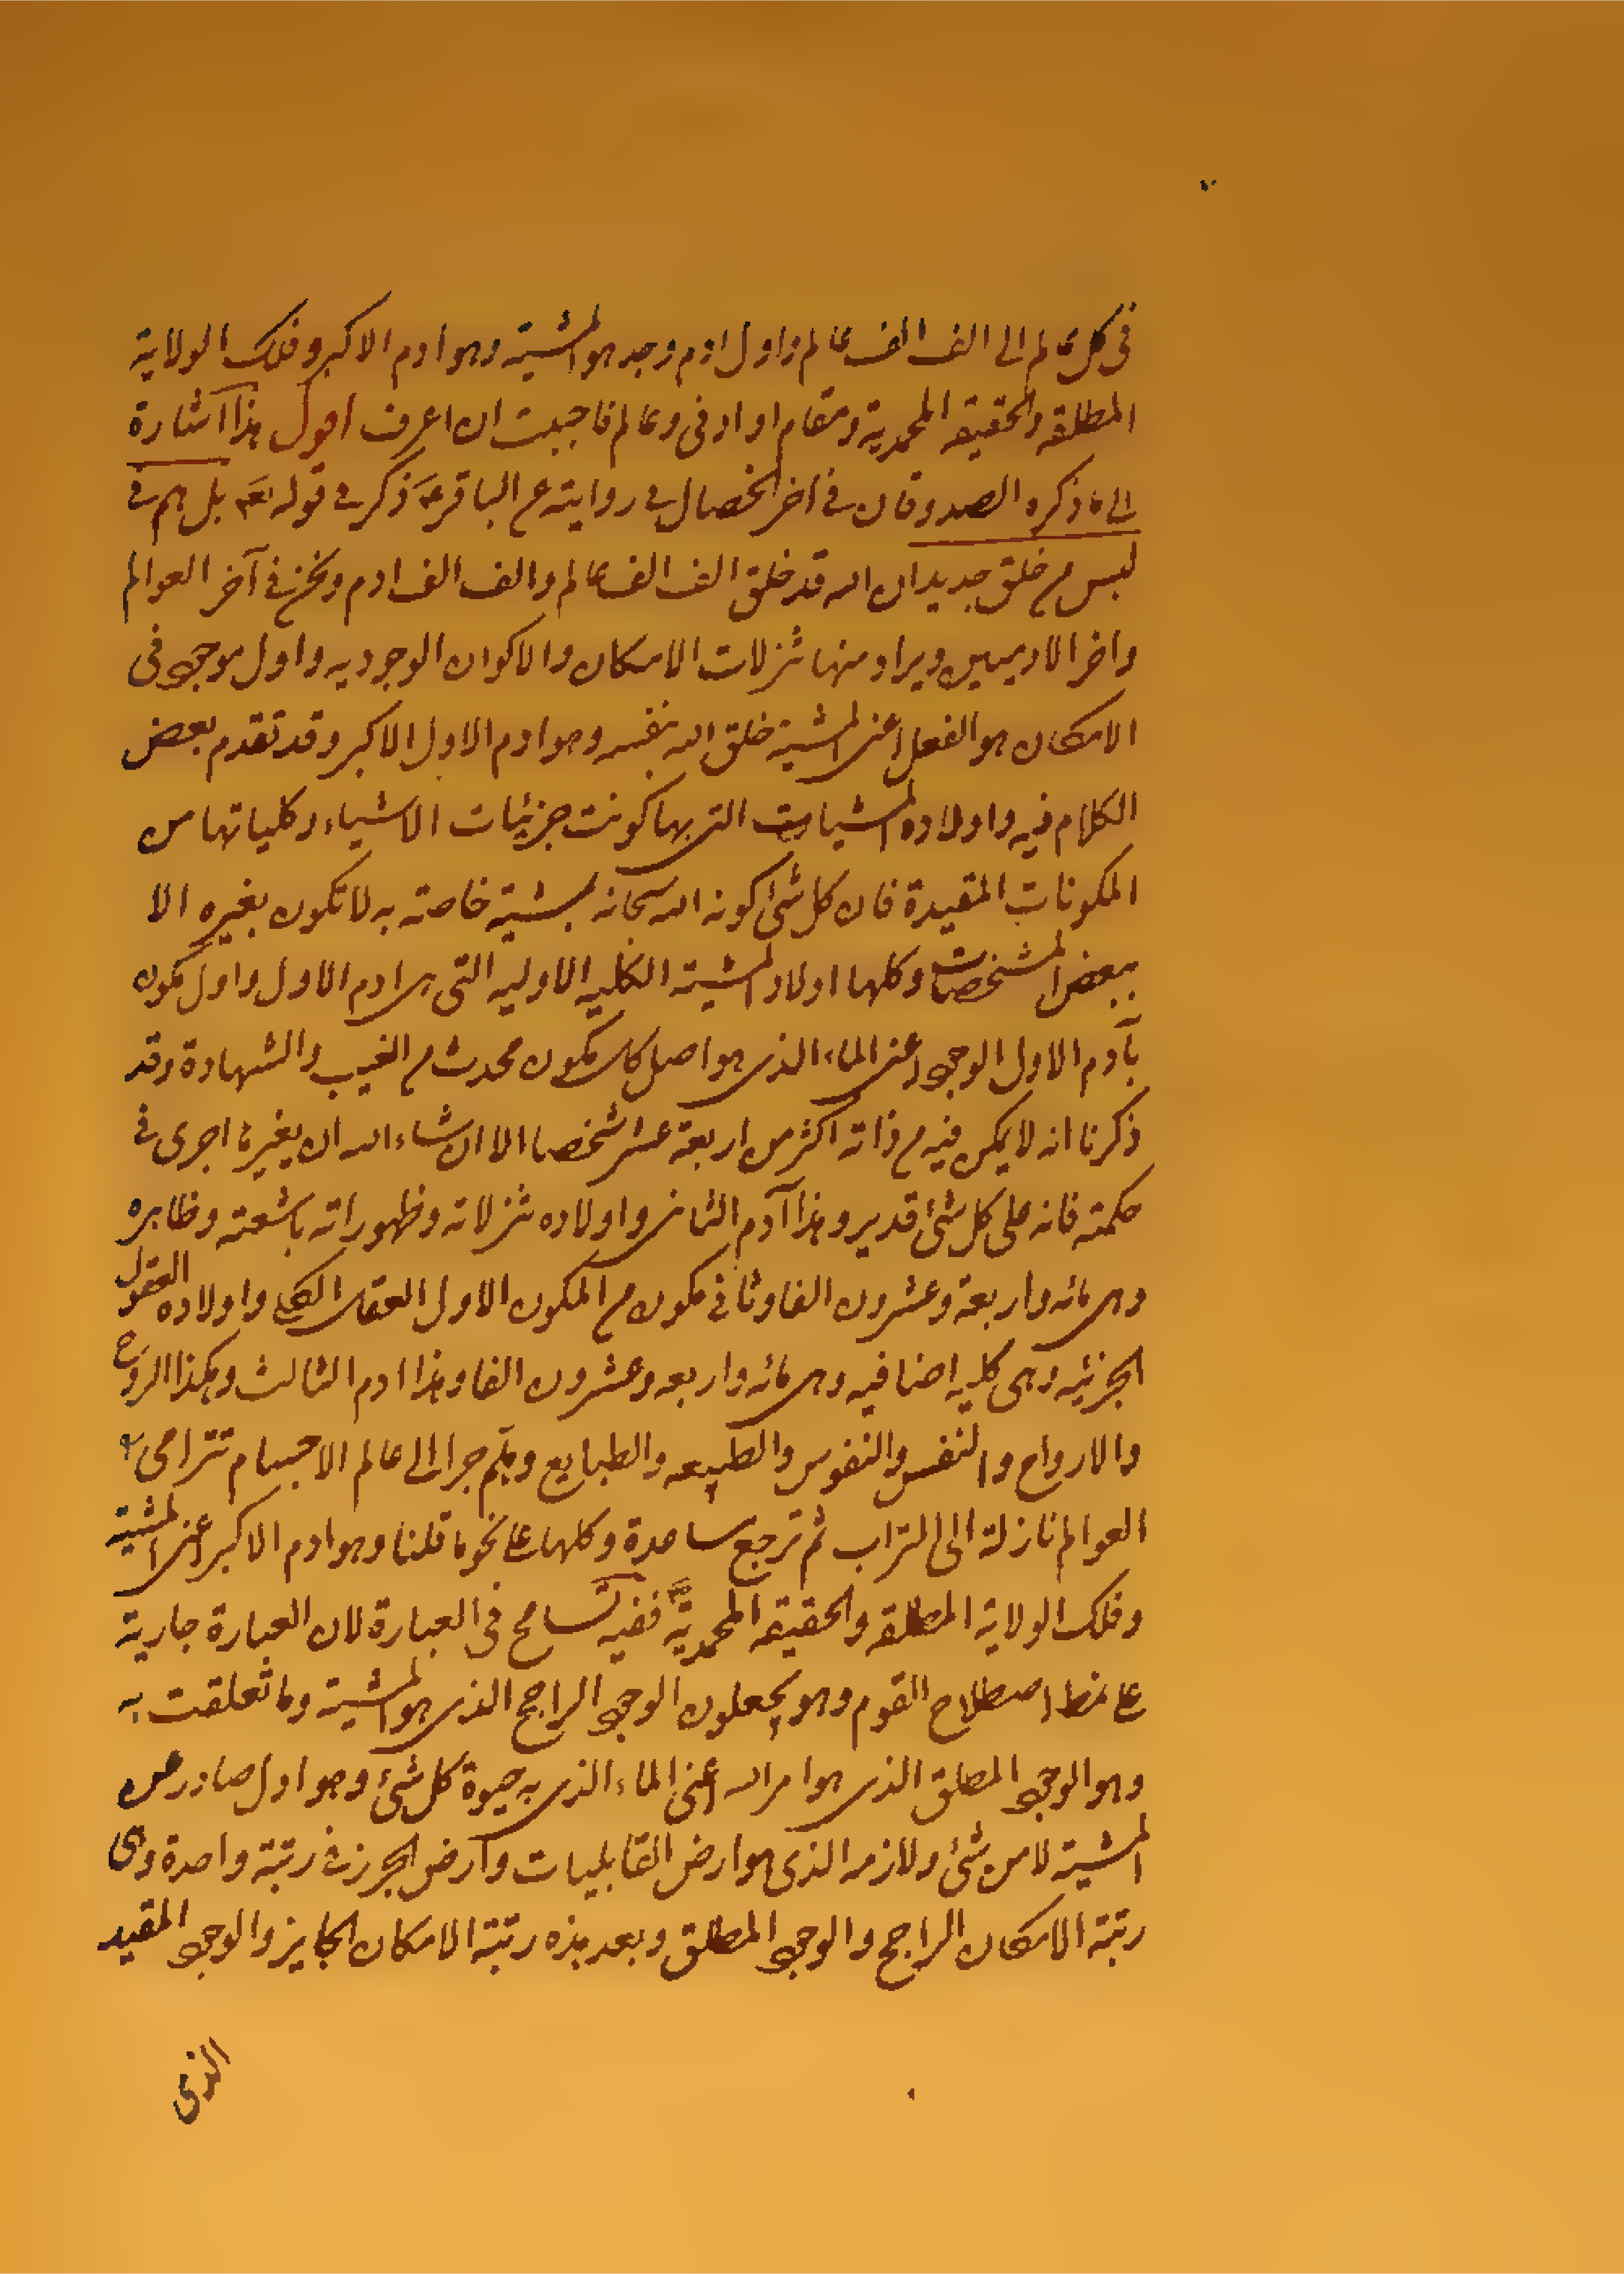 في كل عالم الى الف الف عالم واول ادم وجد هو المشية وهو ادم الاكبر وفلك الولاية
المطلقه والحقيقه المحمدية ومقام او ادنى وعالم فاحببت ان اعرف اقول هذا اشارة
الى ما ذكره الصدوقان في اخر الخصال في رواية عن الباقر ع ذكر في قوله تع بل هم في
لبس من خلق جديد ان الله قد خلق الف الف عالم والف الف ادم ونحن في آخر العوالم
واخر الادميين ويراد منها تنزلات الامكان والاكوان الوجوديه واول موجود في
الامكان هو الفعل اعني المشية خلق الله بنفسه وهو ادم الاول الاكبر وقد تقدم بعض
الكلام فيه واولاده المشيات التي بها كونت جزئيات الاشياء وكلياتها من
المكونات المقيدة فان كل شئ كونه الله سبحانه بمشية خاصته به لا تكون بغيره الا
ببعض المشخصات وكلها اولاد المشية الكليه الاوليه التي هي ادم الاول واول مكون
بآدم الاول الوجود اعني الماء الذي هو اصل كل مكون محدث من الغيب والشهادة وقد
ذكرنا انه لا يمكن فيه من ذاته اكثر من اربعة عشر شخصا الا ان شاء الله ان يغير ما اجرى في
حكمته فانه على كل شئ قدير وهذا آدم الثاني واولاده تنزلاته وظهوراته باشعته وظاهره
وهي مائه واربعة وعشرون الفا وثاني مكون من المكون الاول العقل الكلي واولاده العقول
الجزئيه وهى كليه اضافيه وهي مائه واربعه وعشرون الفا وهذا ادم الثالث وهكذا الروح
والارواح والنفس والنفوس والطبيعه والطبايع وهلم جرا الى عالم الاجسام تترامى
العوالم نازلة الى التراب ثم ترجع صاعدة وكلها على نحو ما قلنا وهو ادم الاكبر اعني المشية
وفلك الولاية المطلقه والحقيقه المحمدية ص ففيه تسامح في العبارة لان العبارة جارية
على نمط اصطلاح القوم وهو يجعلون الوجود الراجح الذي هو المشية وما تعلقت به
وهو الوجود المطلق الذي هو امر الله اعنى الماء الذي به حيوة كل شئ وهو اول صادر من
المشية لا من شئ ولازمه الذى هو ارض القابليات وارض الجرز في رتبة واحدة وهى
رتبة الامكان الراجح والوجود المطلق وبعد هذه رتبة الامكان الجايز والوجود المقيد
الذى